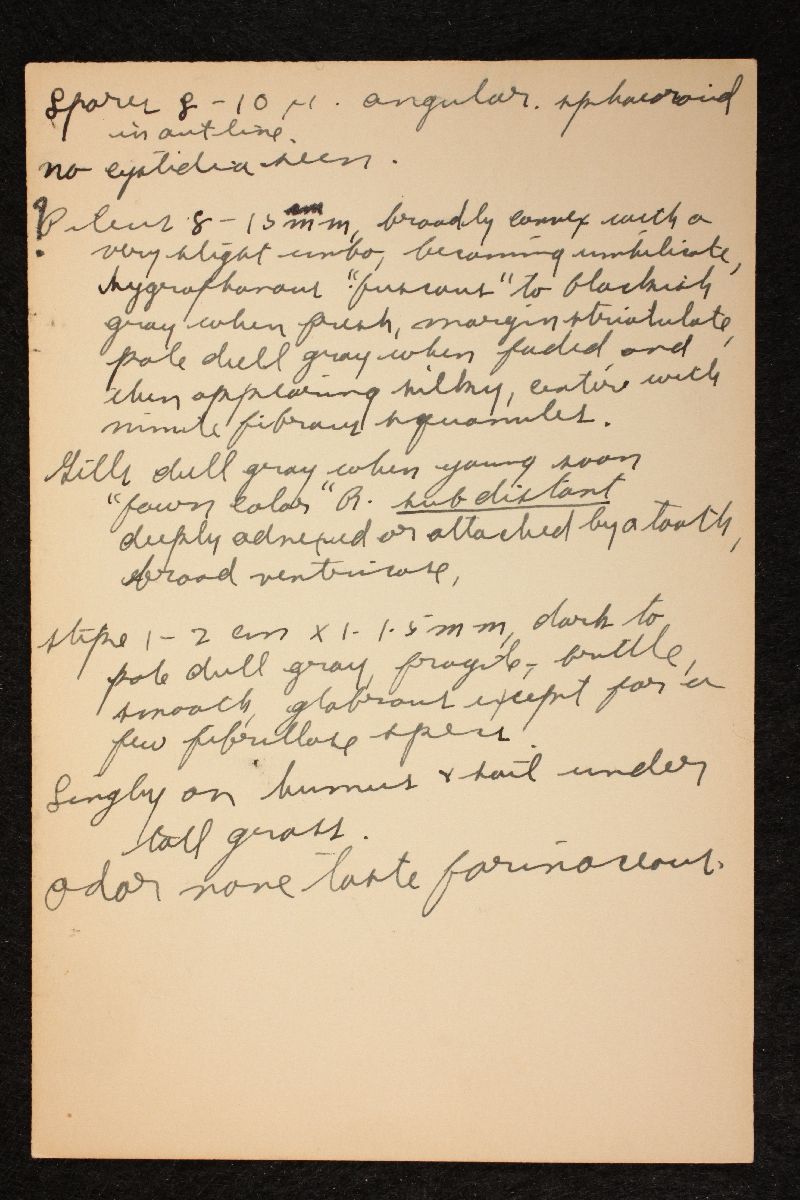 Spores 8-10 µ. angular. sphaeroid
in outline.
no cystidia seen.
? Pileus 8-15 mm, broadly convex with a
very slight umbo, becoming umbilicate,
hygrophanous "fuscous" to blackish
gray when fresh, margin striatulate,
pale dull gray when faded and
then appearing silky, centire with
minute fibrous squamules.
Gills dull gray when young soon
"fawn color" R. subdistant
deeply adnexed or attached by a tooth,
broad ventricose,
stipe 1-2 cm x 1-1.5 mm, dark to
pale dull gray, fragile, brittle,
smooth, glabrous except for a
few fibrillose specs.
Singly on humus & soil under
tall grass.
odor none taste farinaceous.